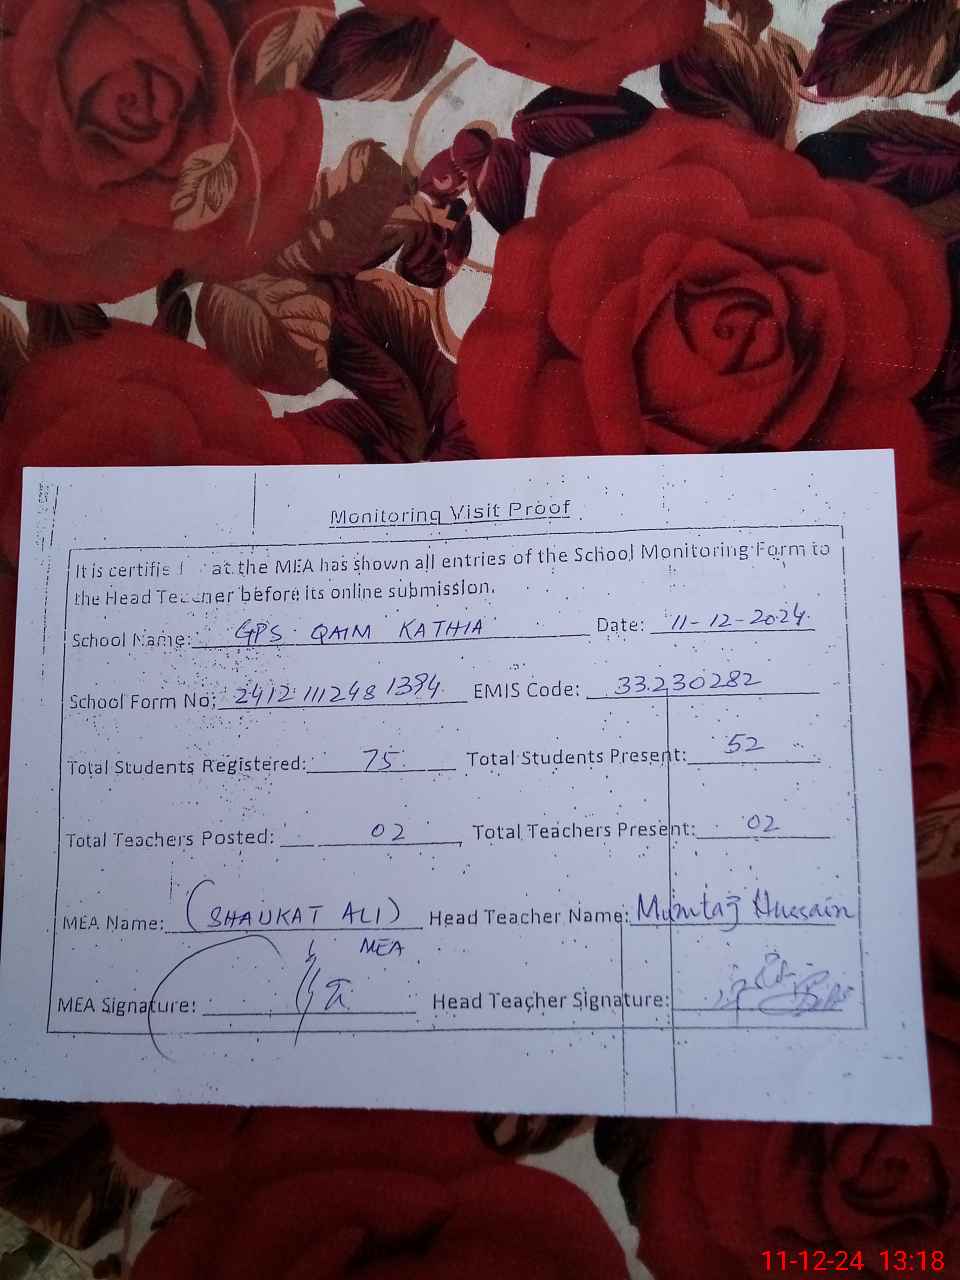 Monitoring Visit Proof
It is certifie at the MEA has shown all entries of the School Monitoring Form to
the Head Teacher before its online submission.
School Name: GPS QAIM KATHIA Date: 11-12-2024
School Form No: 2412111248 1394 EMIS Code: 33230282
Total Students Registered: 75 Total Students Present: 52
Total Teachers Posted: 02 Total Teachers Present: 02
MEA Name: (SHAUKAT ALI) Head Teacher Name: Mumtaz Hussain
MEA
MEA Signature: Head Teacher Signature:
11-12-24 13:18